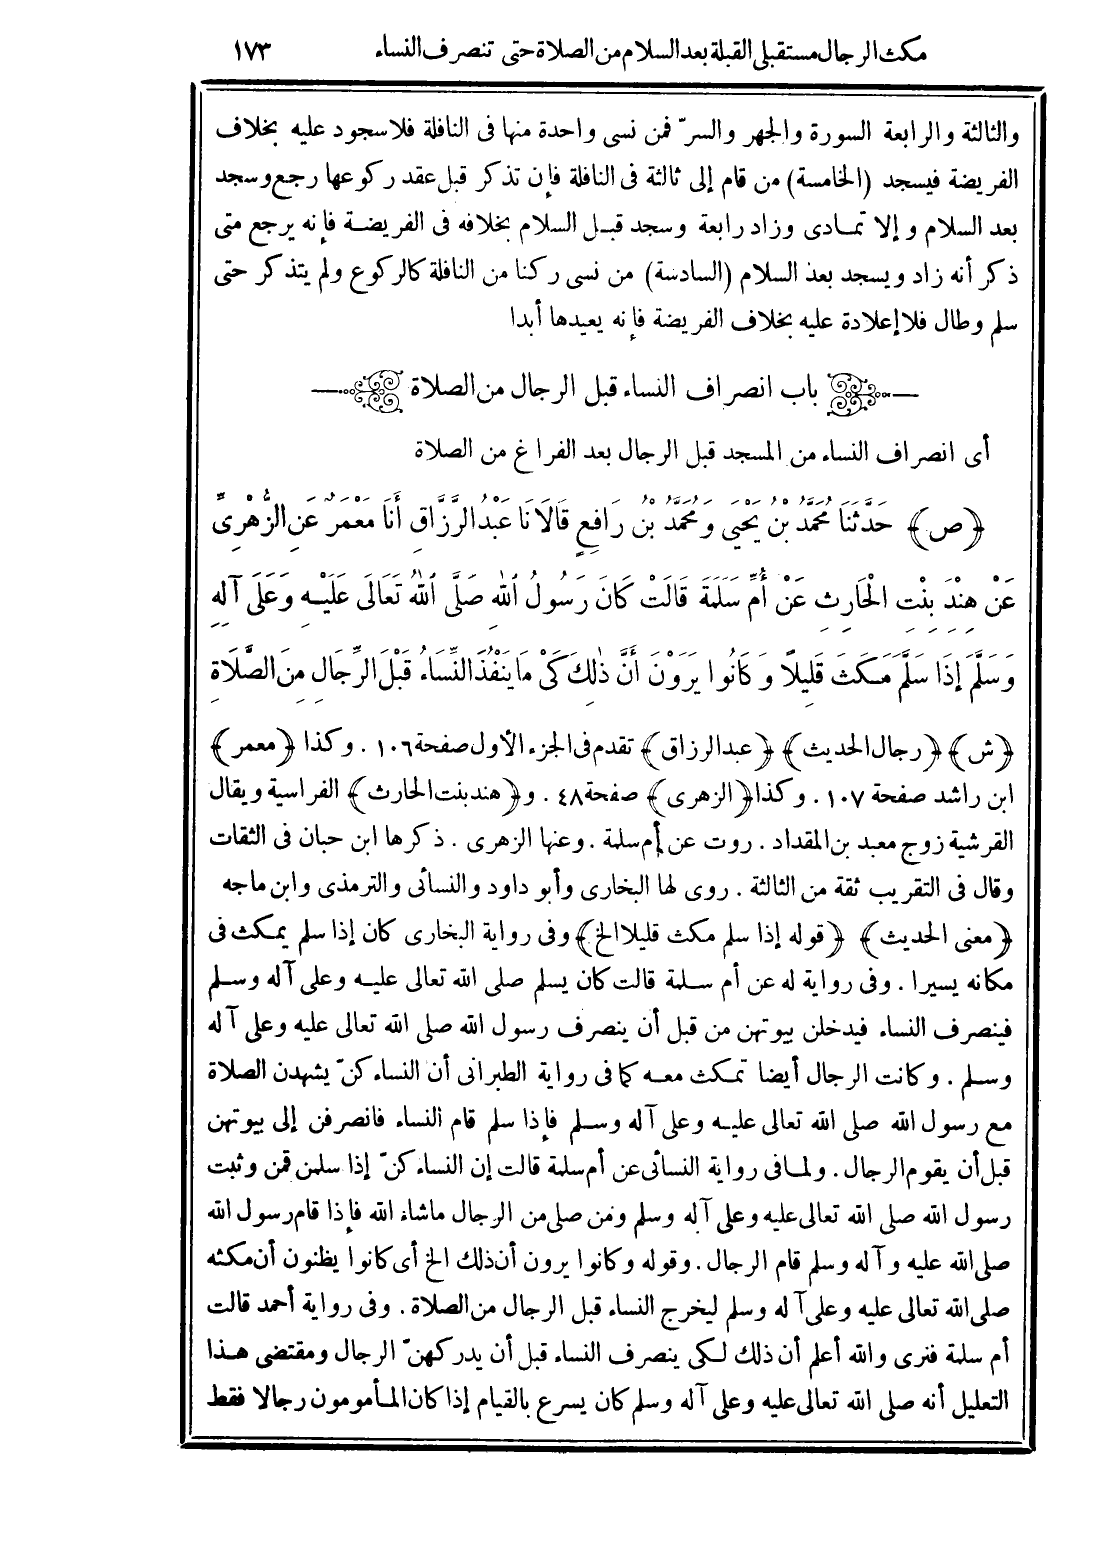 مكث الرجال مستقبلى القبلة بعد السلام من الصلاة حتى تنصرف النساء ١٧٣
والثالثة والرابعة السورة والجهر والسرّ فمن نسى واحدة منها فى النافلة فلا سجود عليه بخلاف
الفريضة فيسجد (الخامسة) من قام إلى ثالثة فى النافلة فإن تذكر قبل عقد ركوعها رجع وسجد
بعد السلام وإلا تمادى وزاد رابعة وسجد قبل السلام بخلافه فى الفريضة فإنه يرجع متى
ذكر أنه زاد ويسجد بعد السلام (السادسة) من نسى ركنا من النافلة كالركوع ولم يتذكر حتى
سلم وطال فلا إعلادة عليه بخلاف الفريضة فإنه يعيدها أبدا
باب انصراف النساء قبل الرجال من الصلاة
أى انصراف النساء من المسجد قبل الرجال بعد الفراغ من الصلاة
﴿ص﴾ حَدَّثَنَا مُحَمَّدُ بْنُ يَحْيَى وَمُحَمَّدُ بْنُ رَافِعٍ قَالَا نَا عَبْدُ الرَّزَّاقِ أَنَا مَعْمَرٌ عَنِ الزُّهْرِىِّ
عَنْ هِنْدَ بِنْتِ الْحَارِثِ عَنْ أُمِّ سَلَمَةَ قَالَتْ كَانَ رَسُولُ اللهِ صَلَّى اللهُ تَعَالَى عَلَيْهِ وَعَلَى آلِهِ
وَسَلَّمَ إِذَا سَلَّمَ مَكَثَ قَلِيلًا وَكَانُوا يَرَوْنَ أَنَّ ذٰلِكَ كَىْ مَا يَنْفُذَ النِّسَاءُ قَبْلَ الرِّجَالِ مِنَ الصَّلَاةِ
﴿ش﴾ ﴿رجال الحديث﴾ ﴿عبد الرزاق﴾ تقدم فى الجزء الأول صفحة ١٠٦ . وكذا ﴿معمر﴾
ابن راشد صفحة ١٠٧ . وكذا ﴿الزهرى﴾ صفحة ٤٨ . و﴿هند بنت الحارث﴾ الفراسية ويقال
القرشية زوج معبد بن المقداد . روت عن أم سلمة . وعنها الزهرى . ذكرها ابن حبان فى الثقات
وقال فى التقريب ثقة من الثالثة . روى لها البخارى وأبو داود والنسائى والترمذى وابن ماجه
﴿معنى الحديث﴾ ﴿قوله إذا سلم مكث قليلا الخ﴾ وفى رواية البخارى كان إذا سلم يمكث فى
مكانه يسيرا . وفى رواية له عن أم سلمة قالت كان يسلم صلى الله تعالى عليه وعلى آله وسلم
فينصرف النساء فيدخلن بيوتهن من قبل أن ينصرف رسول الله صلى الله تعالى عليه وعلى آله
وسلم . وكانت الرجال أيضا تمكث معه كما فى رواية الطبرانى أن النساء كنّ يشهدن الصلاة
مع رسول الله صلى الله تعالى عليه وعلى آله وسلم فإذا سلم قام النساء فانصرفن إلى بيوتهن
قبل أن يقوم الرجال . ولما فى رواية النسائى عن أم سلمة قالت إن النساء كنّ إذا سلمن قمن وثبت
رسول الله صلى الله تعالى عليه وعلى آله وسلم ومن صلى من الرجال ماشاء الله فإذا قام رسول الله
صلى الله عليه وآله وسلم قام الرجال . وقوله وكانوا يرون أن ذلك الخ أى كانوا يظنون أن مكثه
صلى الله تعالى عليه وعلى آله وسلم ليخرج النساء قبل الرجال من الصلاة . وفى رواية أحمد قالت
أم سلمة فنرى والله أعلم أن ذلك لكى ينصرف النساء قبل أن يدركهنّ الرجال ومقتضى هذا
التعليل أنه صلى الله تعالى عليه وعلى آله وسلم كان يسرع بالقيام إذا كان المأمومون رجالا فقط